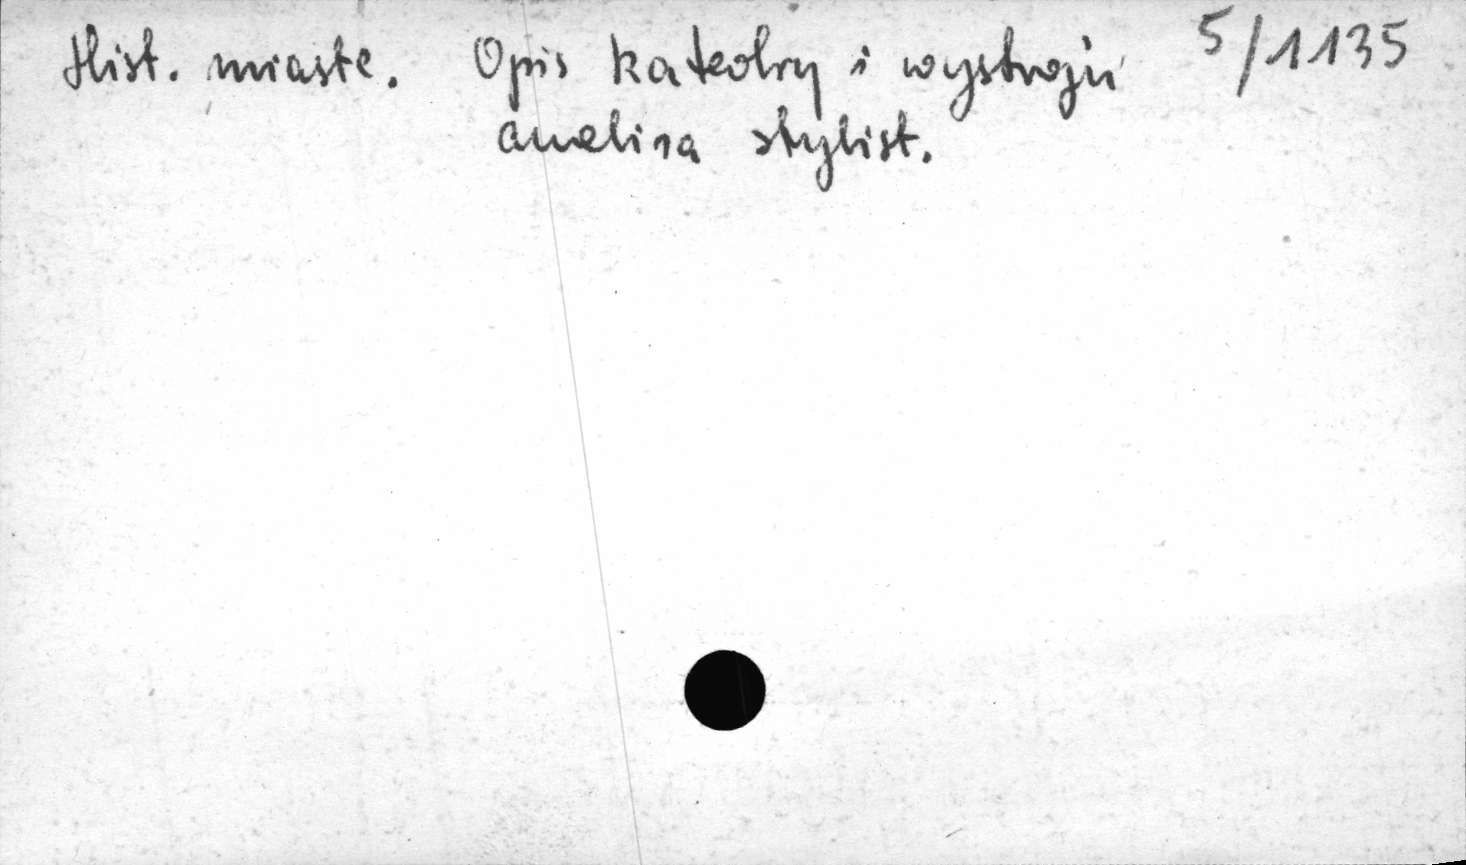 Hist. miasta. Opis katedry i wystroju 5/1135
analiza stylist.